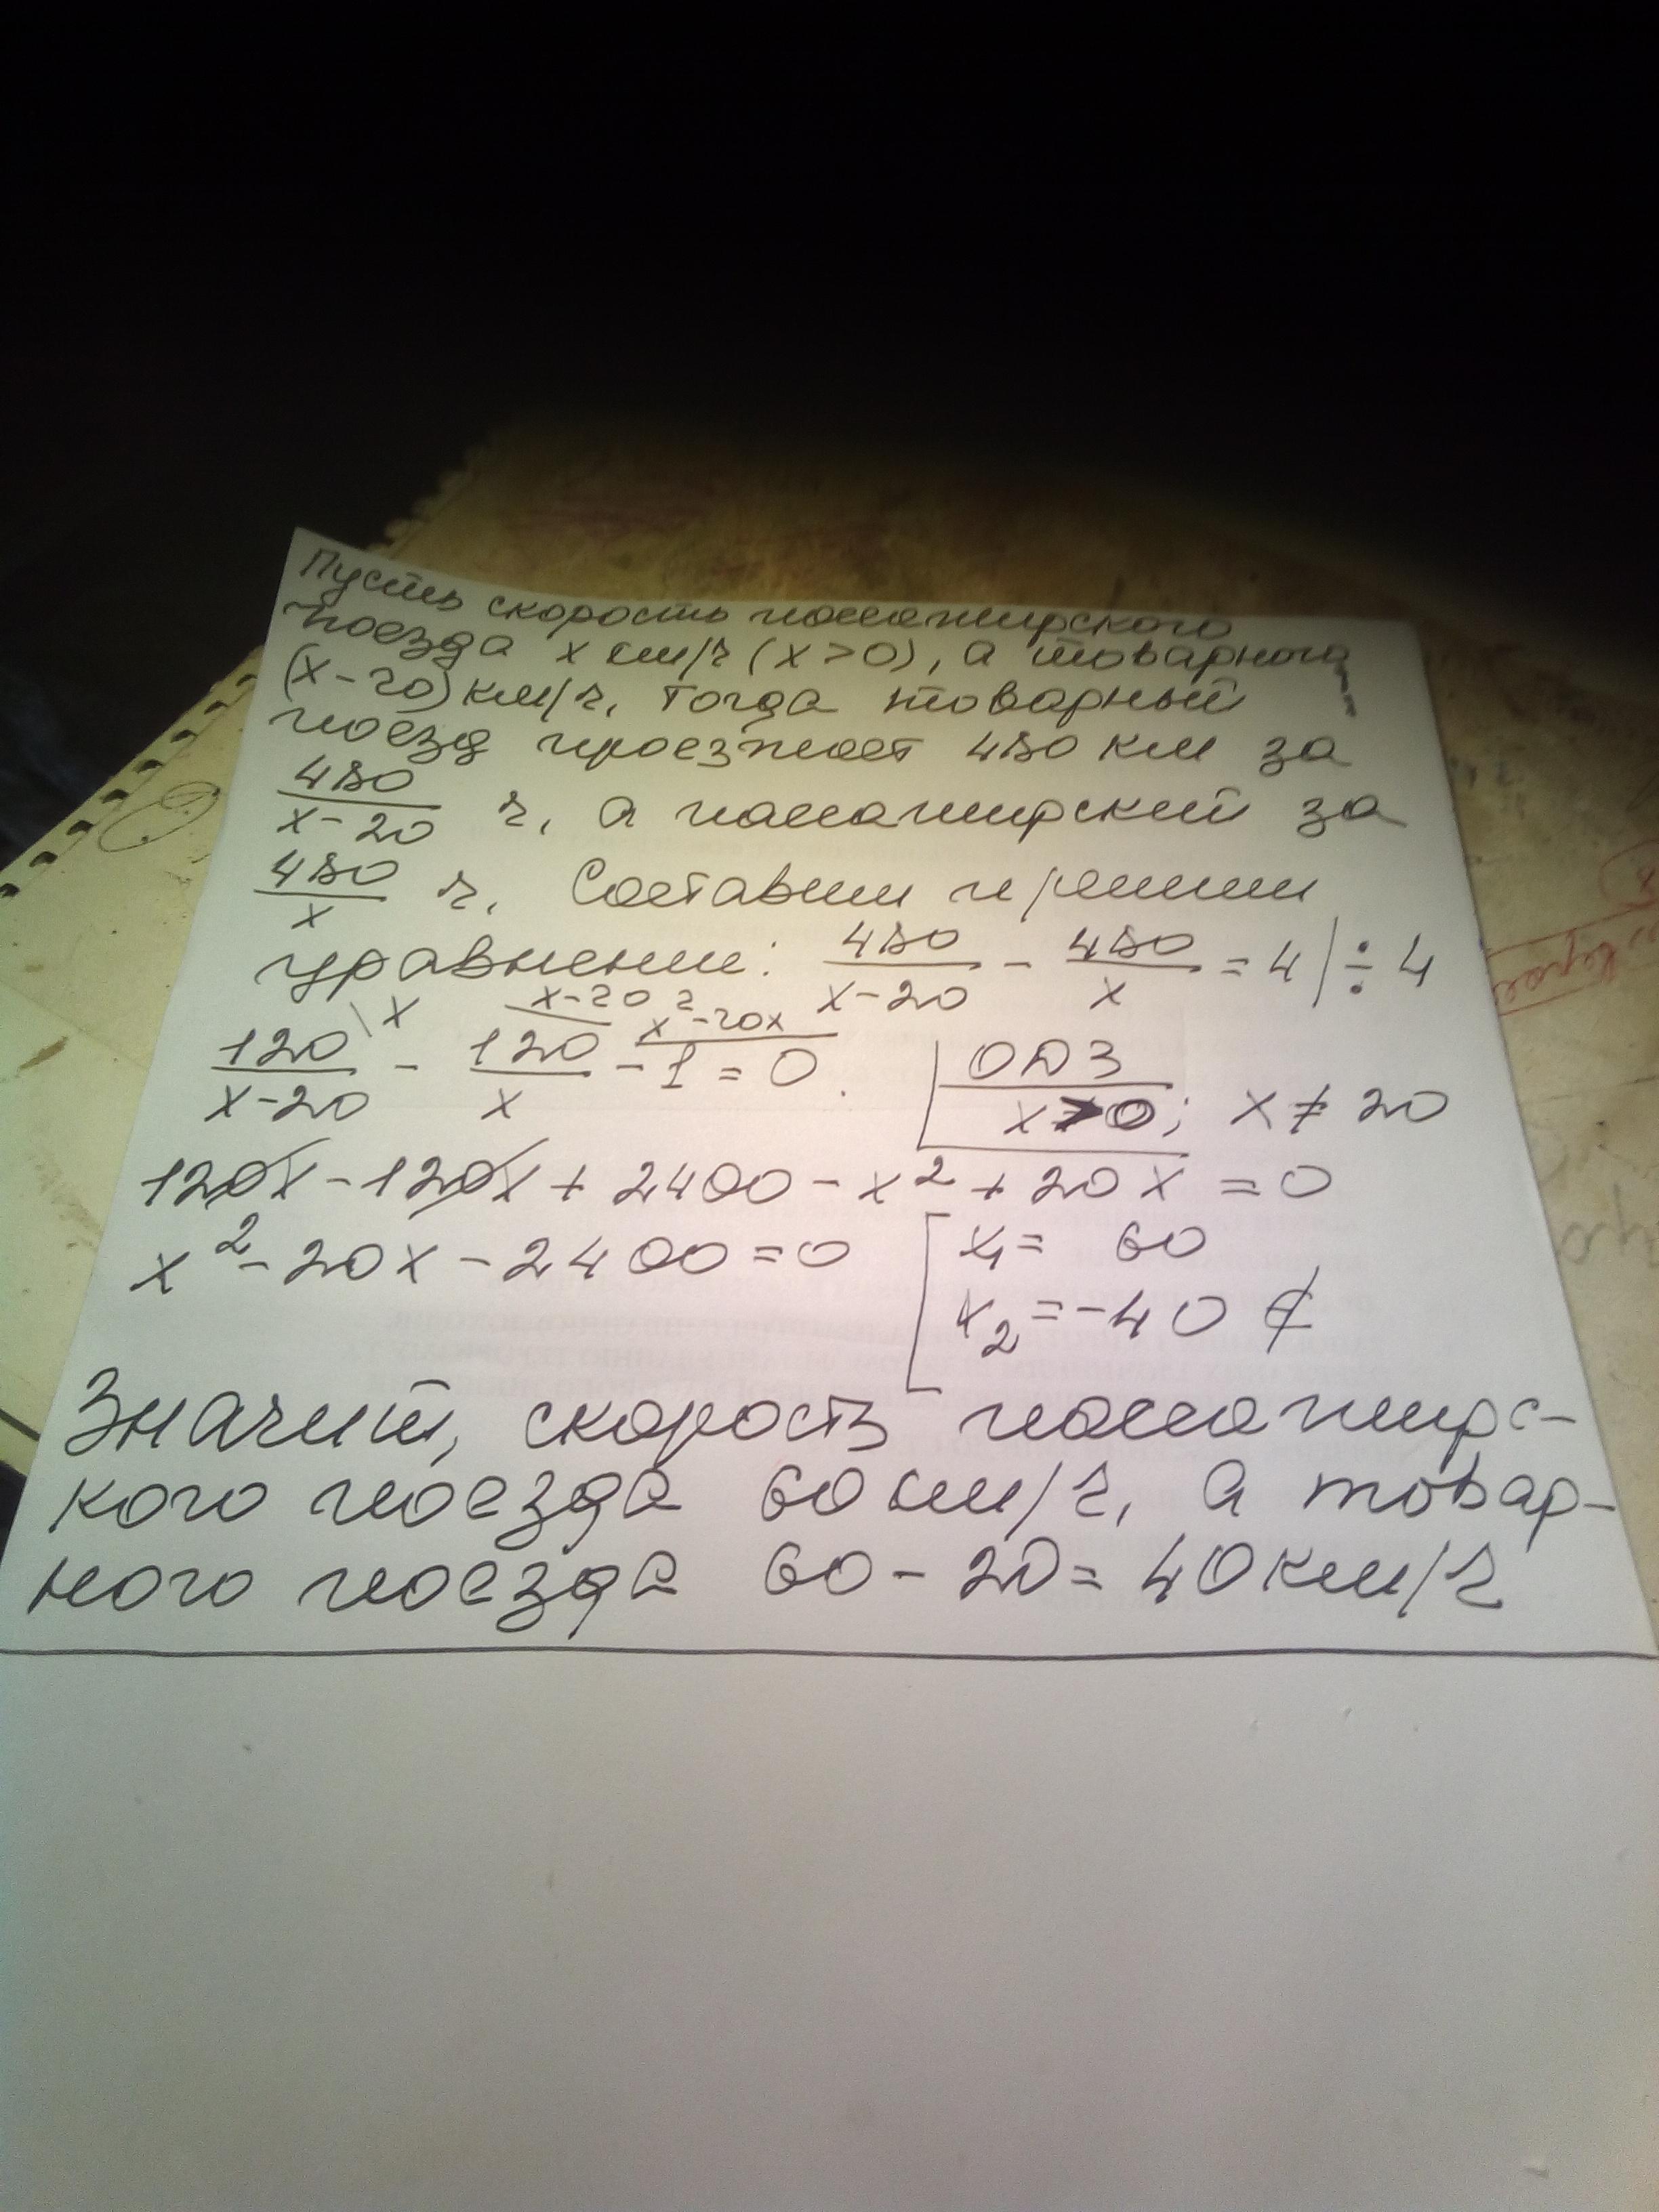 Пусть скорость пассажирского
поезда x км/ч (x>0), а товарного
(x-20) км/ч, тогда товарный
поезд проезжает 480 км за
480/(x-20) ч, а пассажирский за
480/x ч. Составим и решим
уравнение: 480/(x-20) - 480/x = 4 | ÷ 4
120/(x-20) \x - 120/x \x-20 - 1 \x²-20x = 0.
ОДЗ
x>0; x≠20
120x-120x+2400-x²+20x=0
x²-20x-2400=0
x₁= 60
x₂=-40 ∉
Значит, скорость пассажирс-
кого поезда 60 км/ч, а товар-
ного поезда 60-20=40км/ч